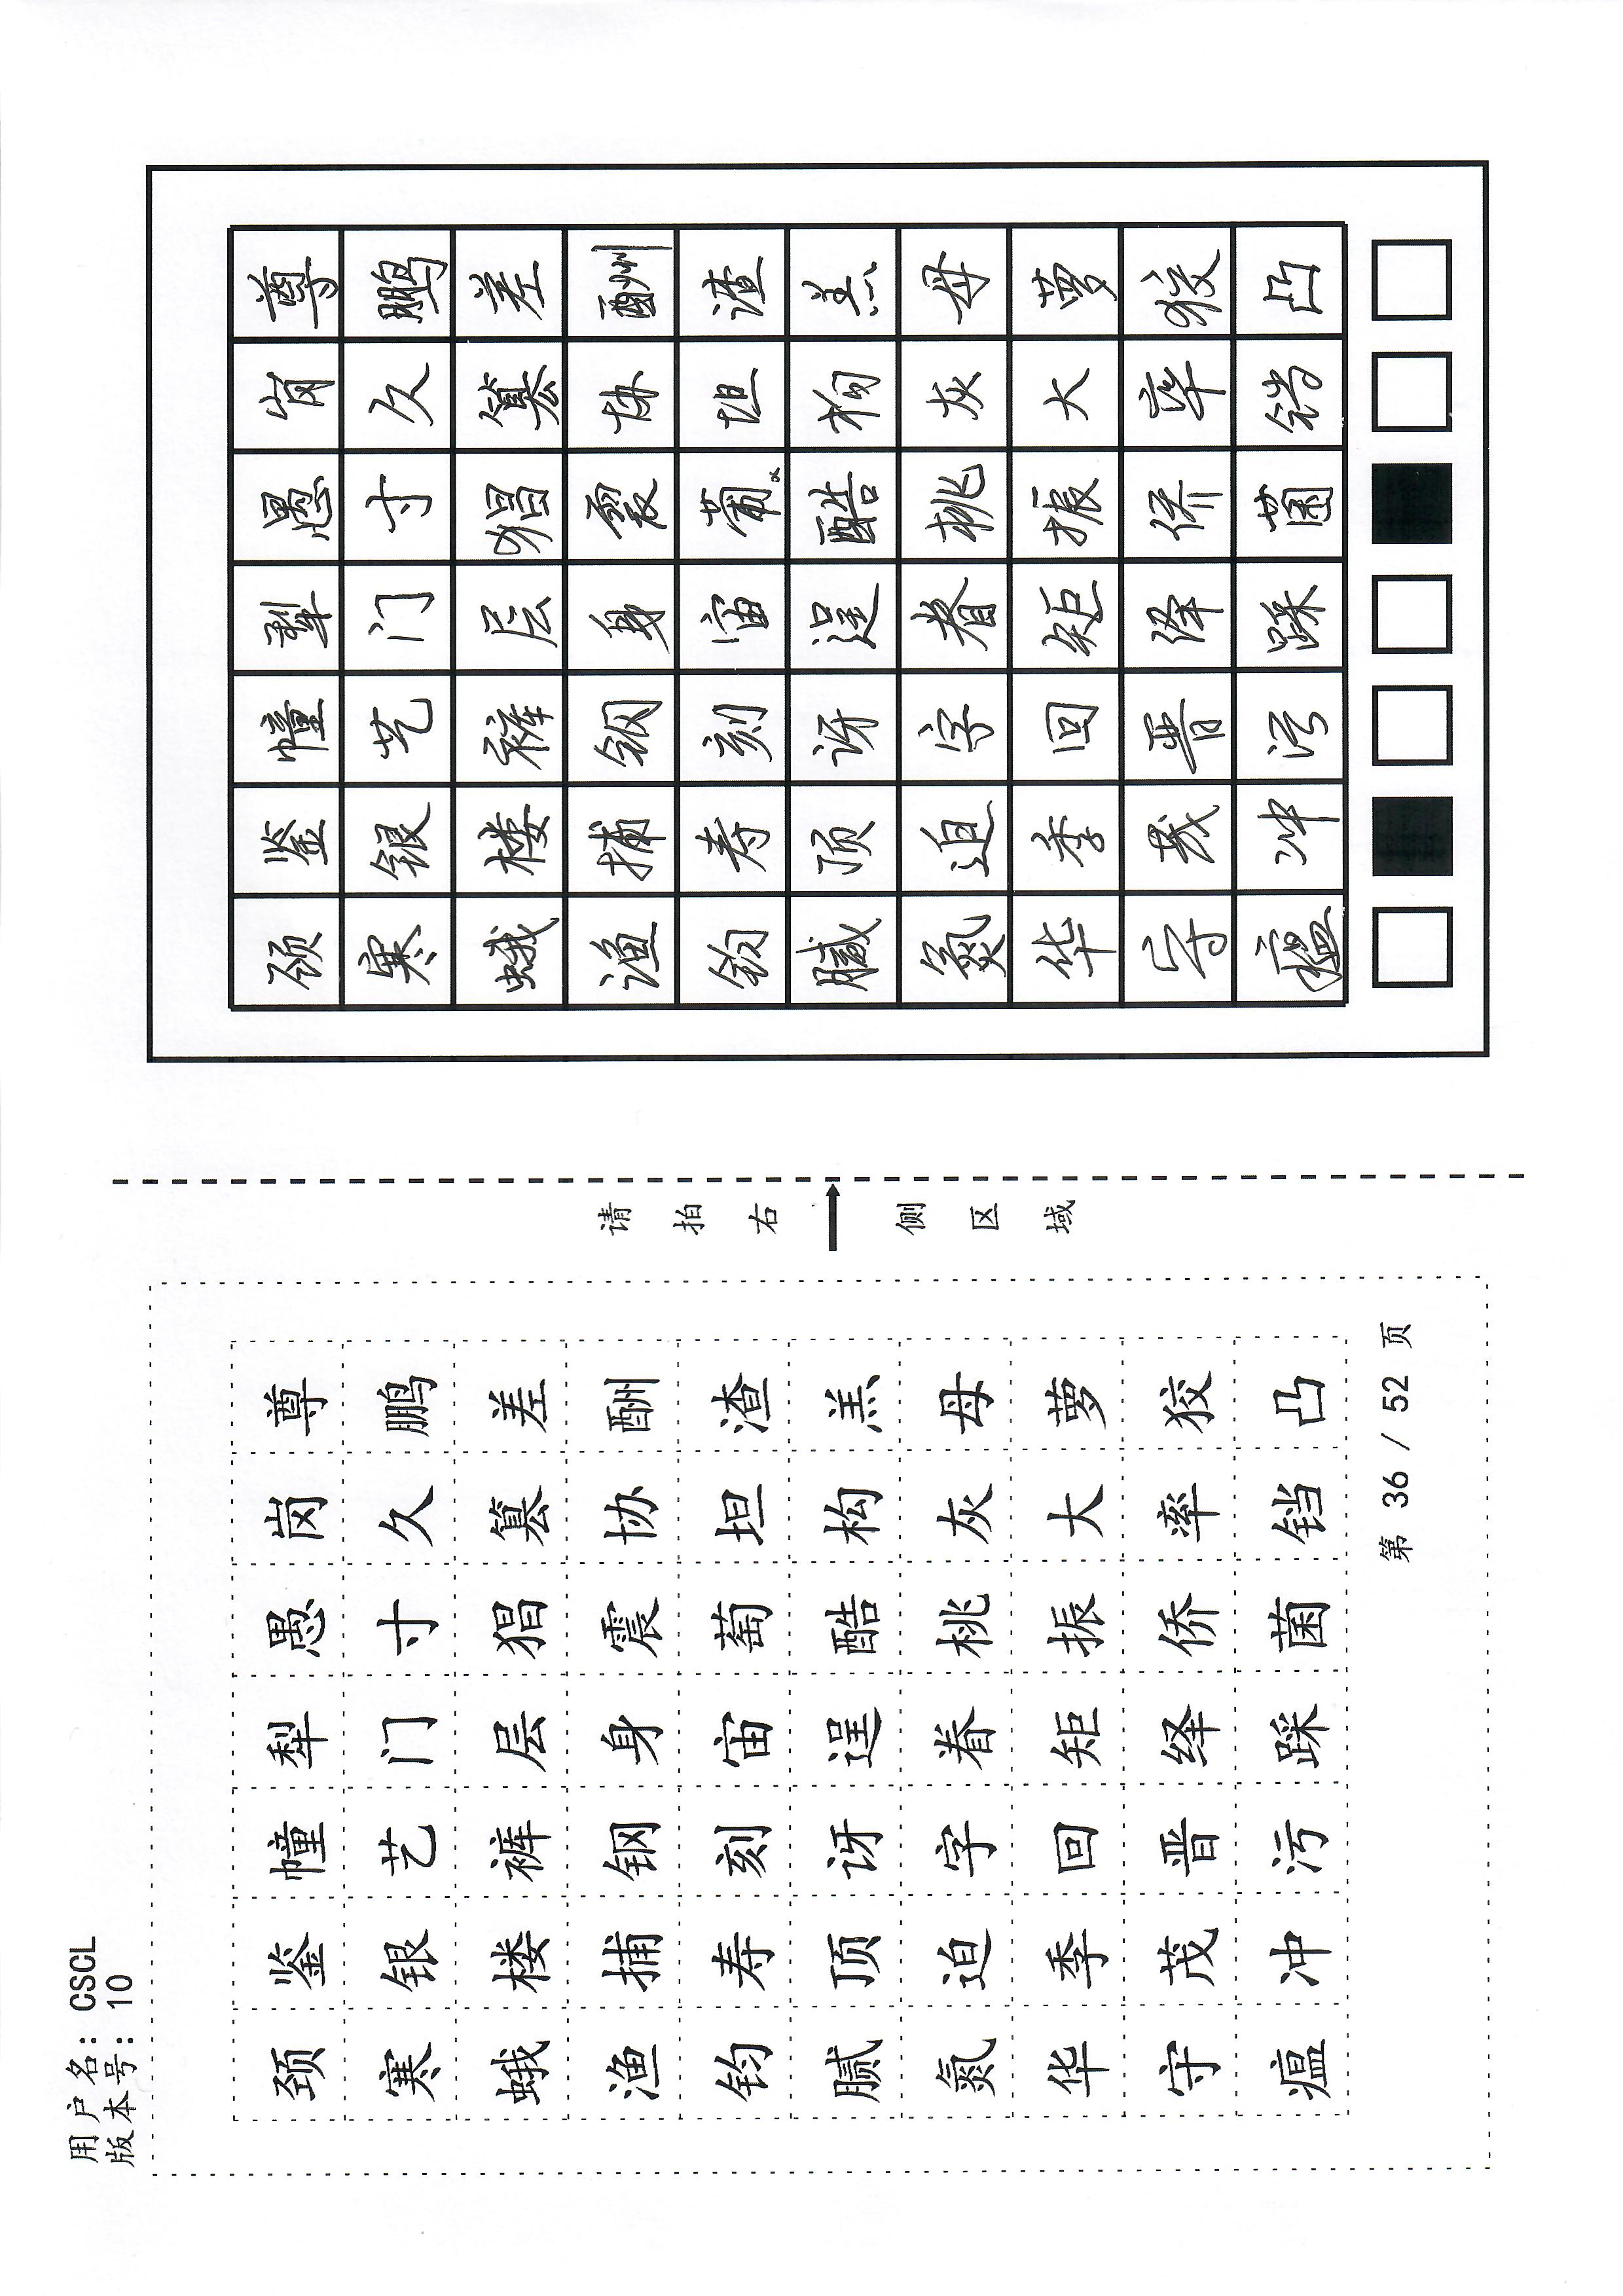 用户名：CSCL
版本号：10
颈鉴幢犁愚岗尊
寒银艺门寸久鹏
蛾楼裤层猖篡差
渔捕钢身震协酬
钧寿刻宙萄坦渣
腻顶讶逞酷构羔
氮迫字眷桃灰母
华季回矩振大萝
守茂晋绎侨率狡
瘟冲污踩菌铛凸
第 36 / 52 页
请拍右侧区域
颈鉴幢犁愚岗尊
寒银艺门寸久鹏
蛾楼裤层猖篡差
渔捕钢身震协酬
钧寿刻宙坦渣
腻顶讶逞酷构羔
氮迫字眷桃灰母
华季回矩振大萝
守茂晋绎侨率狡
瘟冲污踩菌铛凸